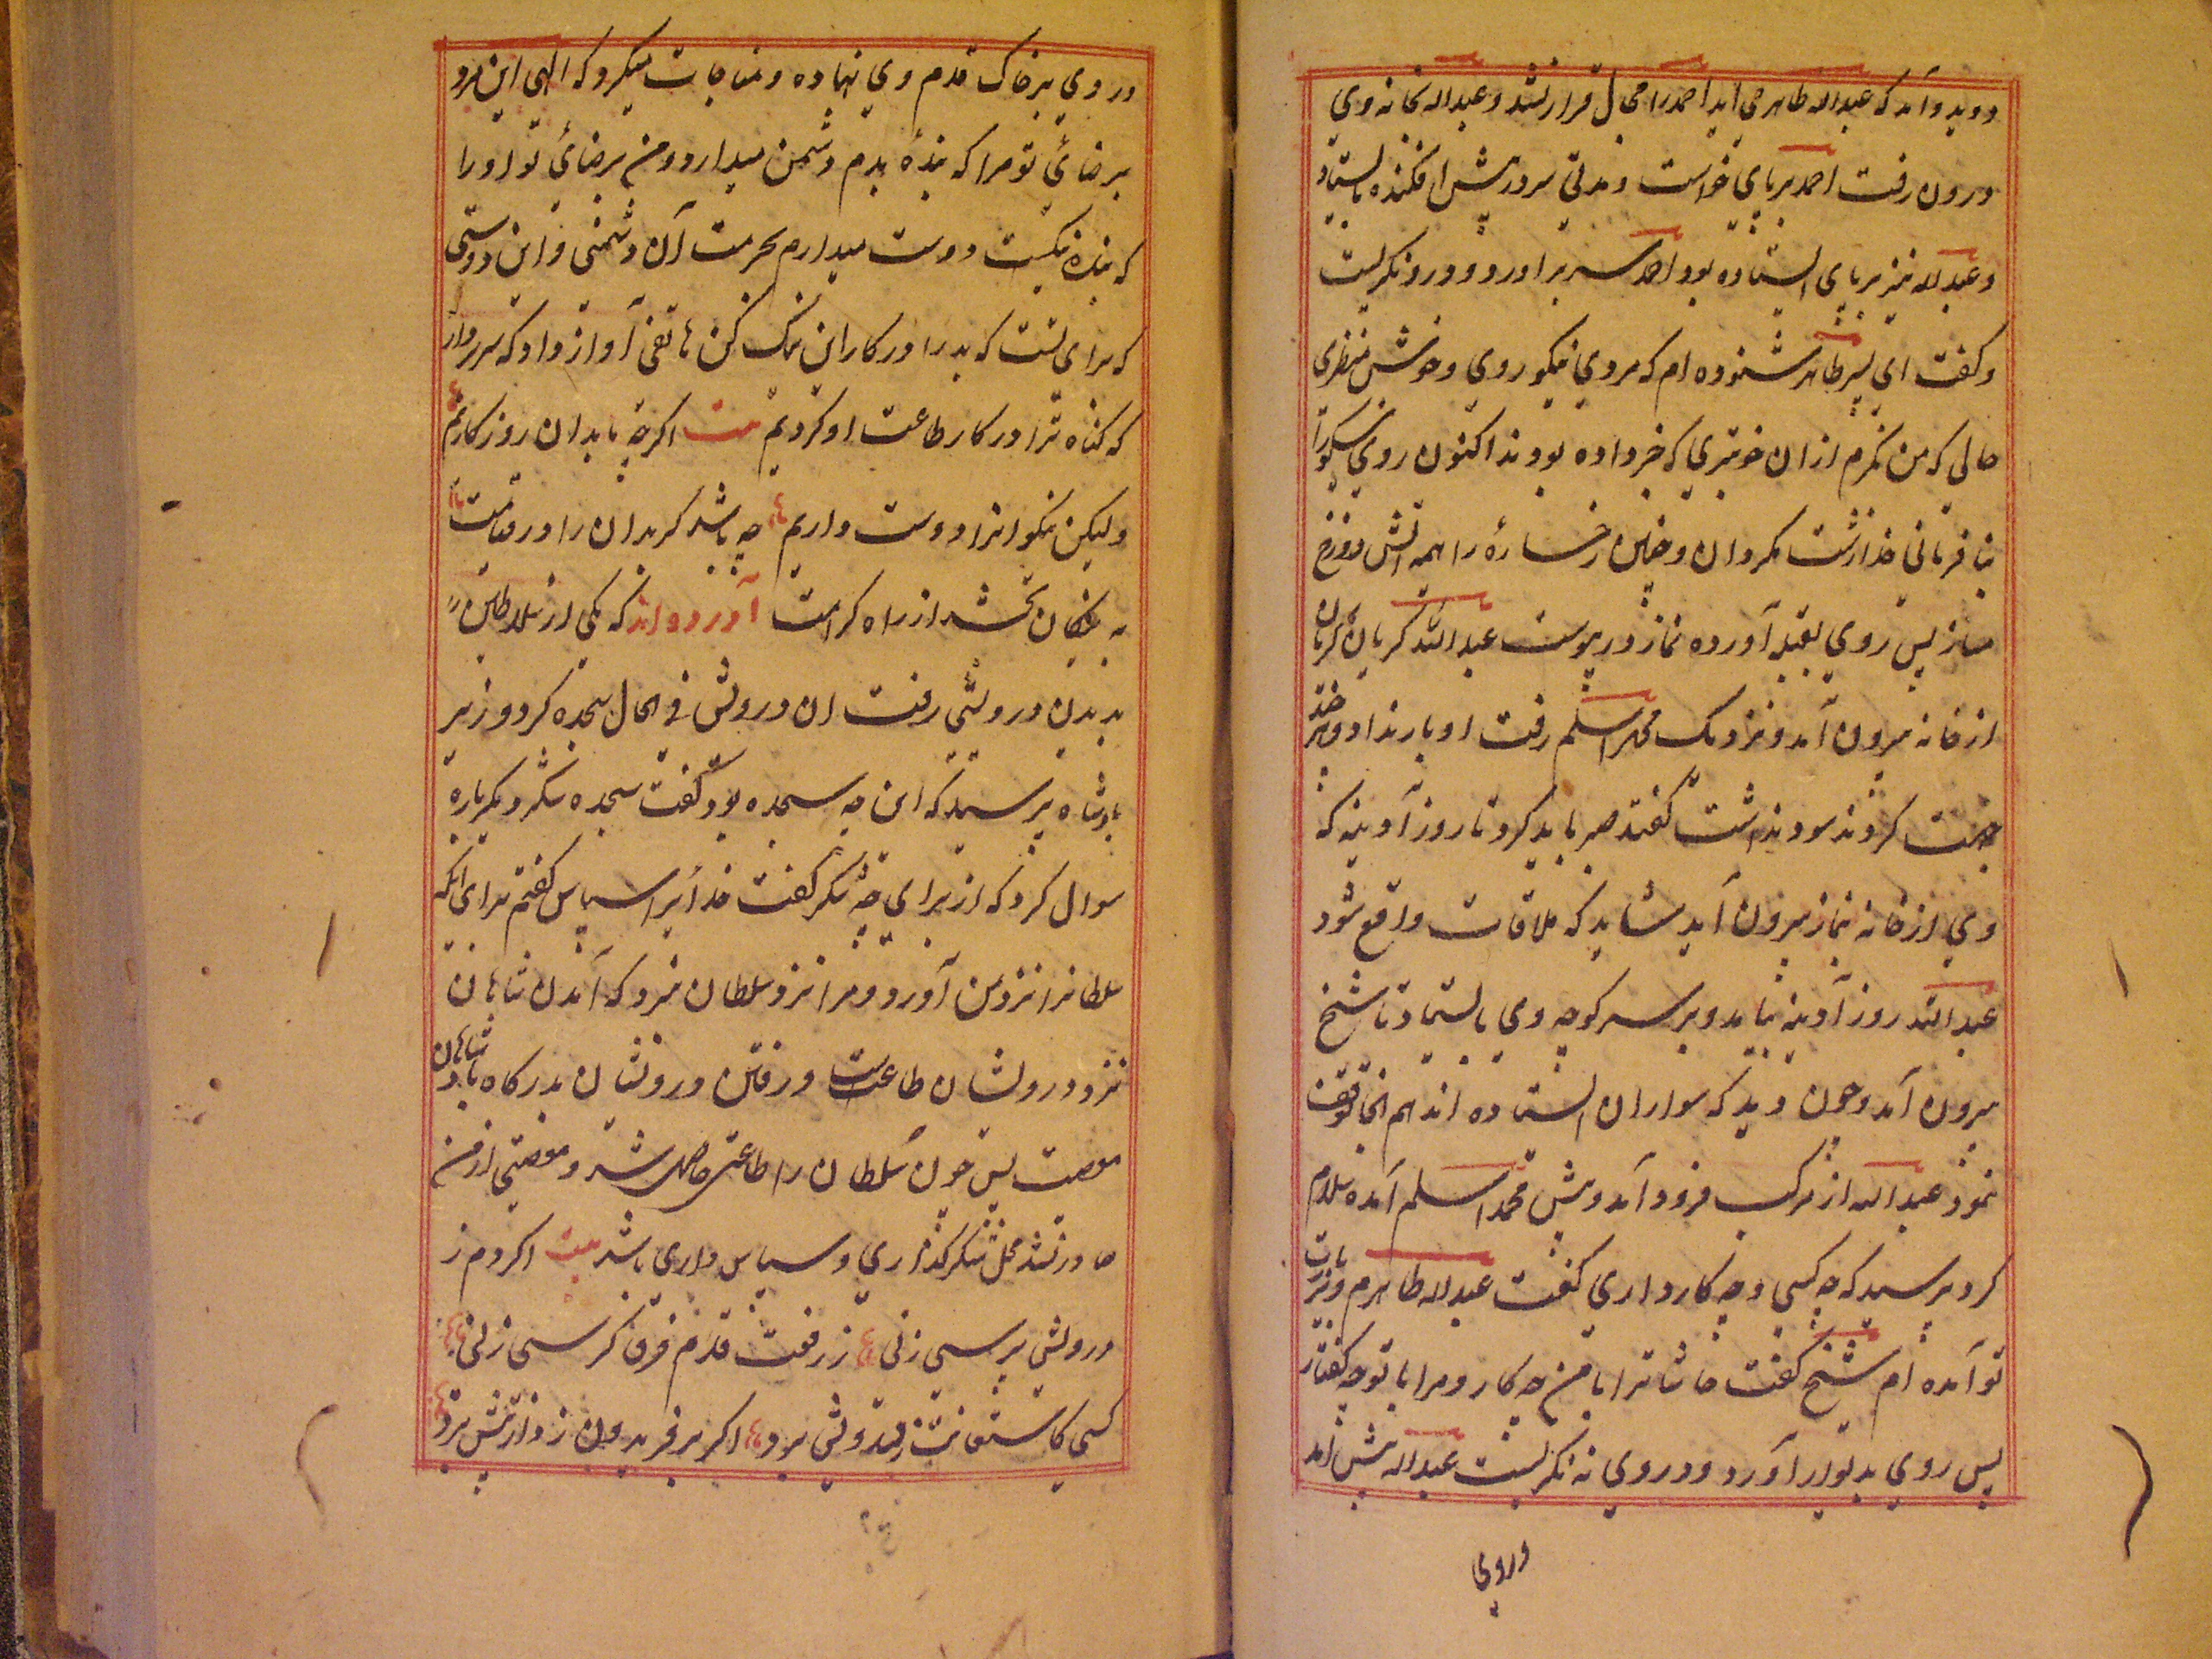 دوید و آمد که عبداله طاهر می اید احمد را مجال قرار نشد و عبداله بخانه وی
درون رفت احمد بر پای خواست و مدتی سر در پیش افکنده بایستاد
و عبدالله نیز بر پای ایستاده بود احمد سر براورد و درو نگریست
و گفت ای پسر طاهر شنوده ام که مردی نیکو روی و خوش منظری
حالی که من نگرم ازان خوبتری که خبر داده بودند اکنون روی نیکو را
بنافرمانی خدا زشت مگردان و چنین رخساره را همیه آتش دوزخ
مساز پس روی بقبله آورده نماز در پیوست عبدالله گریان گریان
از خانه بیرون آمد و نزدیک محمد اسلم رفت او بار نداد و هرچند
جهت کردند سود نداشت گفتند صبر باید کرد تا روز آدینه که
وی از خانه بنماز بیرون آید شاید که ملاقات واقع شود
عبدالله روز آدینه بیامد و بر سر کوچه وی بایستاد تا شیخ
بیرون آمد و چون دید که سواران ایستاده اند هم انجا توقف
نمود عبداله از مرکب فرود آمد و پیش محمد اسلم آمده سلام
کرد پرسید که چه کسی و چه کار داری گفت عبداله طاهرم و بزیارت
تو آمده ام شیخ گفت حاشا ترا با من چه کار و مرا با تو چه گفتار
پس روی بدیوار آورد و در وی نه نگریست عبداله پیش آمد
و روی
و روی بر خاک قدم وی نهاده و مناجات میکرد که الهی این مرد
برضائی تو مرا که بنده بدم دشمن میدارد و من برضائی تو او را
که بنده نیکست دوست میدارم بحرمت آن دشمنی و این دوستی
که برای تست که بد را در کار این نیک کن هاتفی آواز داد که سر بردار
که گناه ترا در کار طاعت او کردیم بیت اگرچه با بدان روزگاریم
ولیکن نیکوانرا دوست داریم چه باشد گر بدان را در قیامت
به نیکان بخشد از راه کرامت آورده اند که یکی از سلاطین
بدیدن درویشی رفت ان درویش فی الحال سجده کرد وزیر
بادشاه پرسید که این چه سجده بود گفت سجده شکر دیگرباره
سوال کرد که از برای چه شکر گفت خدایرا سپاس گفتم برای انکه
سلطانرا نزد من آورد و مرا نزد سلطان نبرد که آمدن شاهان
نزد درویشان طاعتست و رفتن درویشان بدرگاه بادشاهان
معصیت پس چون سلطان را طاعتی حاصل شد و معصیتی از من
صادر نشد محل شکرگذاری و سپاس داری باشد بیت اگر دم ز
درویش پرسی زنی ز رفعت قدم فوق کرسی زنی
کسی کاستعانت بدرویش برد اگر بر فریدون زد از پیش برد